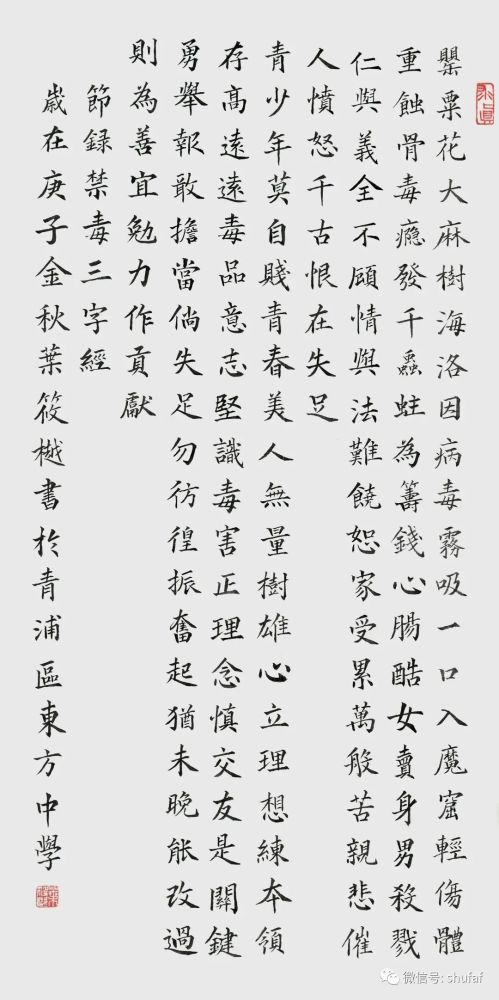 罌粟花大麻樹海洛因病毒霧吸一口入魔窟輕傷體
重蝕骨毒瘾發千蟲蛀為籌錢心腸酷女賣身男殺戮
仁與義全不顧情與法難饒恕家受累萬般苦親悲催
人憤怒千古恨在失足
青少年莫自賤青春美人無量樹雄心立理想練本領
存高遠遠毒品意志堅識毒害正理念慎交友是關鍵
勇舉報敢擔當倘失足勿彷徨振奮起猶未晚能改過
則為善宜勉力作貢獻
節録禁毒三字經
歲在庚子金秋葉筱樾書於青浦區東方中學
微信号: shufaf